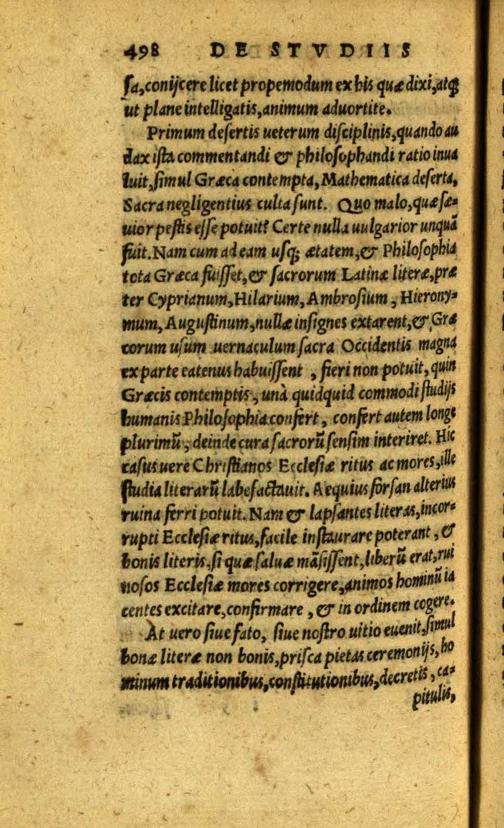 498 DE STVDIIS
ſa, conijcere licet propemodum ex his quæ dixi, atq;
ut plane intelligatis, animum aduortite.
Primum deſertis ueterum diſciplinis, quando au
dax iſta commentandi & philoſophandi ratio inua
luit, ſimul Græca contempta, Mathematica deſerta,
Sacra negligentius culta ſunt. Quo malo, quæ ſæ-
uior peſtis eſſe potuit? Certe nulla uulgarior unquã
fuit. Nam cum ad eam uſq; ætatem, & Philoſophia
tota Græca fuiſſet, & ſacrorum Latinæ literæ, præ
ter Cyprianum, Hilarium, Ambroſium, Hierony-
mum, Auguſtinum, nullæ inſignes extarent, & Græ
corum uſum uernaculum ſacra Occidentis magna
ex parte eatenus habuiſſent, fieri non potuit, quin
Græcis contemptis, unà quidquid commodi ſtudijs
humanis Philoſophia confert, confert autem longe
plurimũ, deinde cura ſacrorũ ſenſim interiret. Hic
caſus uere Chriſtianos Eccleſiæ ritus ac mores, ille
ſtudia literarũ labefactauit. Aequius forſan alterius
ruina ferri potuit. Nam & lapſantes literas, incor-
rupti Eccleſiæ ritus, facile inſtaurare poterant, &
bonis literis, ſi quæ ſaluæ mãſiſſent, liberũ erat, rui
noſos Eccleſiæ mores corrigere, animos hominũ ia
centes excitare, confirmare, & in ordinem cogere.
At uero ſiue fato, ſiue noſtro uitio euenit, ſimul
bonæ literæ non bonis, priſca pietas ceremonijs, ho
minum traditionibus, conſtitutionibus, decretis, ca-
pitulis,